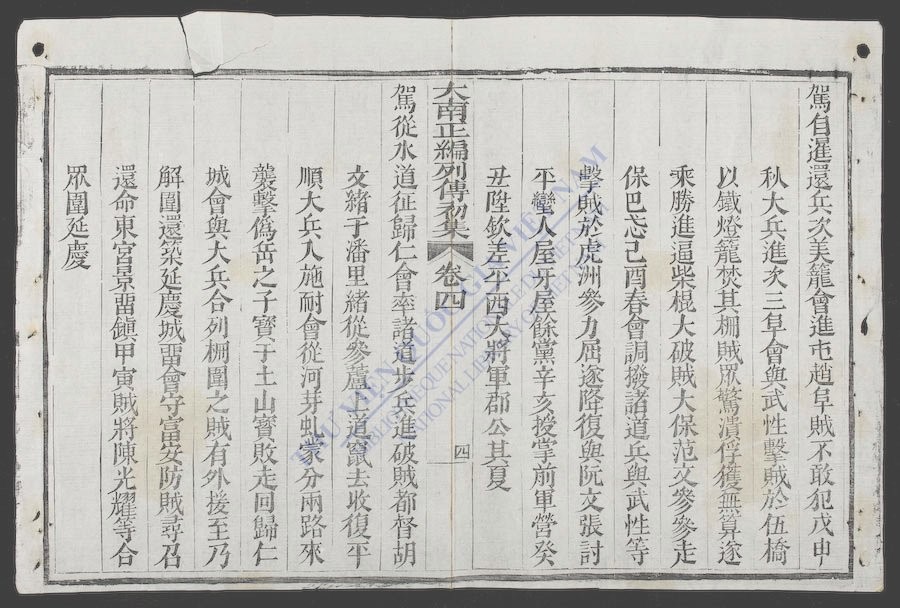 駕自暹還兵次美籠會進屯趙阜賊不敢犯戊申
秋大兵進次三阜會與武性擊賊於伍橋
以鐵燈籠焚其柵賊眾驚潰俘獲無算遂
乘勝進逼柴棍大破賊太保范文參參走
保巴忒己酉春會調撥諸道兵與武性等
擊賊於虎洲參力屈遂降復與阮文張討
平蠻人屋牙屋餘黨辛亥授掌前軍營癸
丑陞欽差平西大將軍郡公其夏
大南正編列傳初集 卷四
四
駕從水道征歸仁會率諸道步兵進破賊都督胡
文緒于潘里緒從參蘆上道竄去收復平
順大兵入施耐會從河芽虬蒙分兩路來
襲擊偽岳之子寶于土山寶敗走回歸仁
城會與大兵合列柵圍之賊有外援至乃
解圍還築延慶城畱會守富安防賊尋召
還命東宮景畱鎮甲寅賊將陳光耀等合
眾圍延慶
THƯ VIỆN QUỐC GIA VIỆT NAM
BIBLIOTHEQUE NATIONALE DU VIETNAM
NATIONAL LIBRARY OF VIETNAM